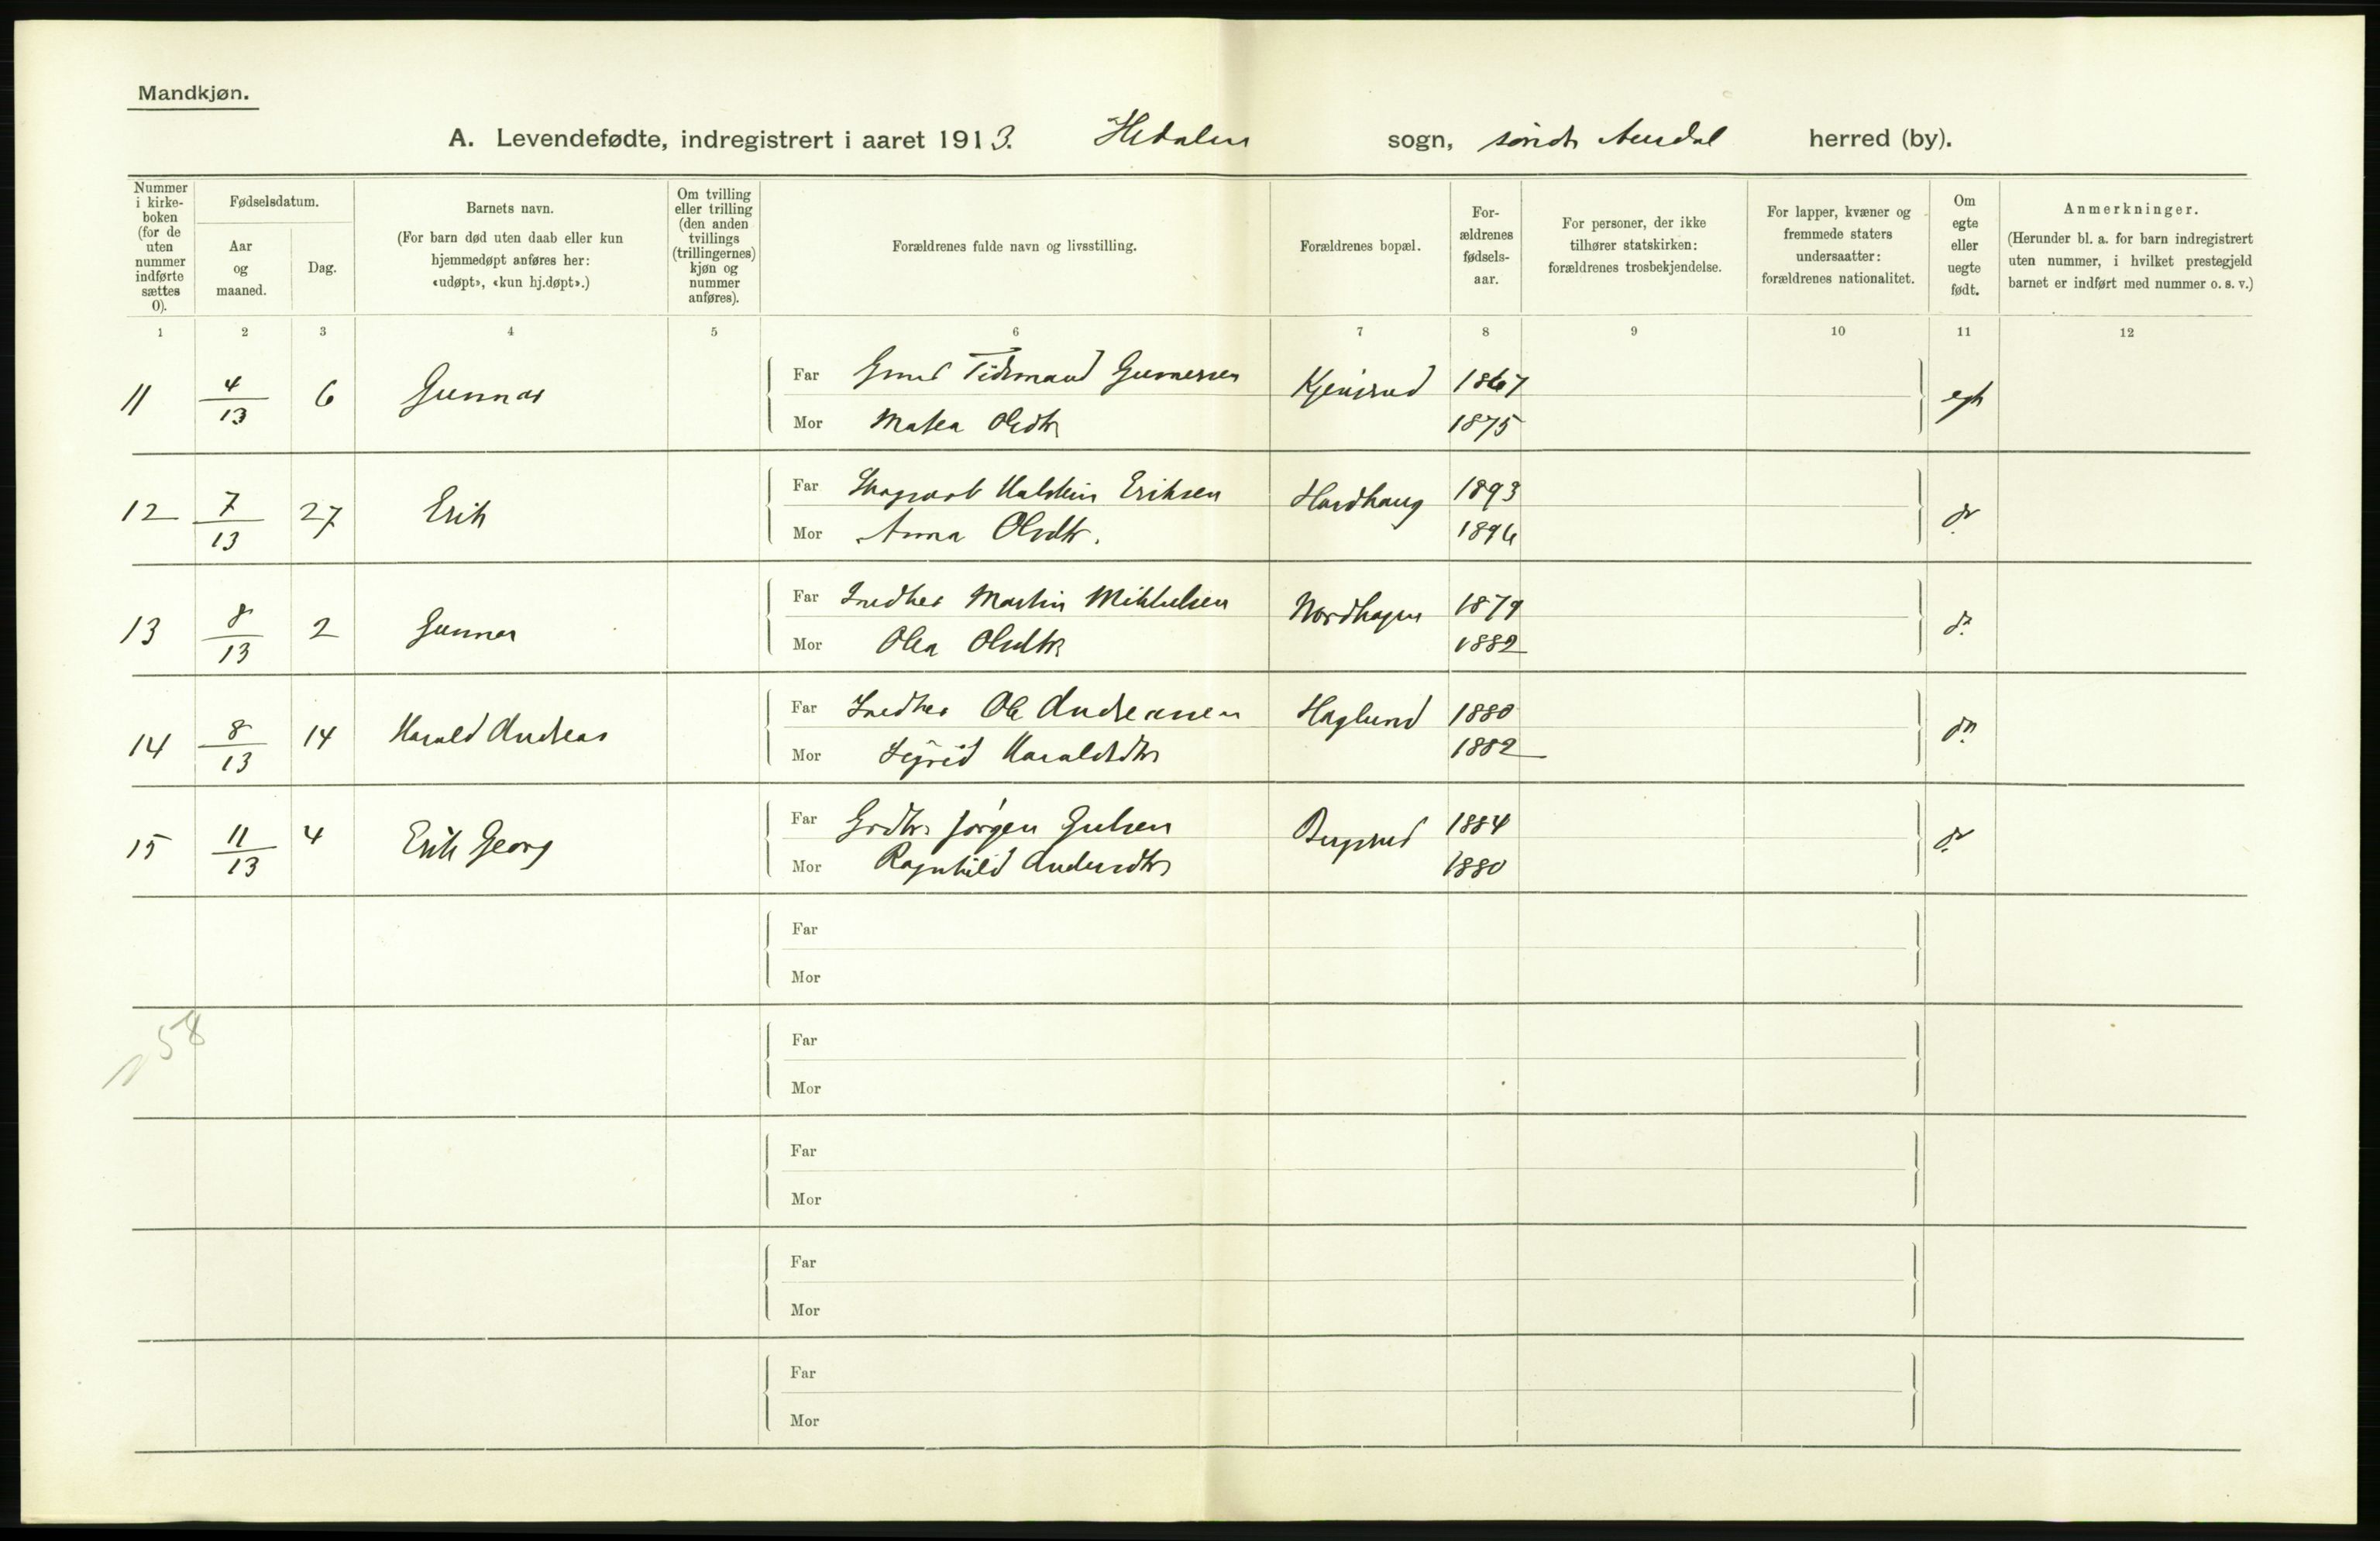 Mandkjøn.
A. Levendefødte, indregistrert i aaret 1913. Hedalen sogn, søndr Aurdal herred (by).
Nummer i kirke-boken (for de uten nummer indførte sættes 0).
Fødselsdatum.
Aar og maaned.
Dag.
Barnets navn.
(For barn død uten daab eller kun
hjemmedøpt anføres her:
«udøpt», «kun hj.døpt».)
Om tvilling
eller trilling
(den anden
tvillings
(trillingernes)
kjøn og
nummer
anføres).
Forældrenes fulde navn og livsstilling.
Forældrenes bopæl.
For-
ældrenes
fødsels-
aar.
For personer, der ikke
tilhører statskirken:
forældrenes trosbekjendelse.
For lapper, kvæner og
fremmede staters
undersaatter:
forældrenes nationalitet.
Om
egte
eller
uegte
født.
Anmerkninger.
(Herunder bl. a. for barn indregistrert
uten nummer, i hvilket prestegjeld
barnet er indført med nummer o. s. v.)
1 2 3 4 5 6 7 8 9 10 11 12
11 4/13 6 Gunnar
Far Tidemand Gunnersen 1867 egte
Mor Matea Olsdtr 1875
12 7/13 27 Erik
Far Halstein Eriksen Hardhaug 1893 do
Mor Anna Olsdtr. 1896
13 8/13 2 Gunnar
Far Snedker Martin Mikkelsen Nordhagen 1879 do
Mor Olea Olsdtr 1882
14 8/13 14 Harald Andreas
Far Snedker Ole Andreassen Haglund 1880 do
Mor Sigrid Haraldsdtr 1882
15 11/13 4 Erik Georg
Far Grdbr. Jørgen Bergsrud 1884 do
Mor Ragnhild Andersdtr 1880
Far
Mor
58
Far
Mor
Far
Mor
Far
Mor
Far
Mor